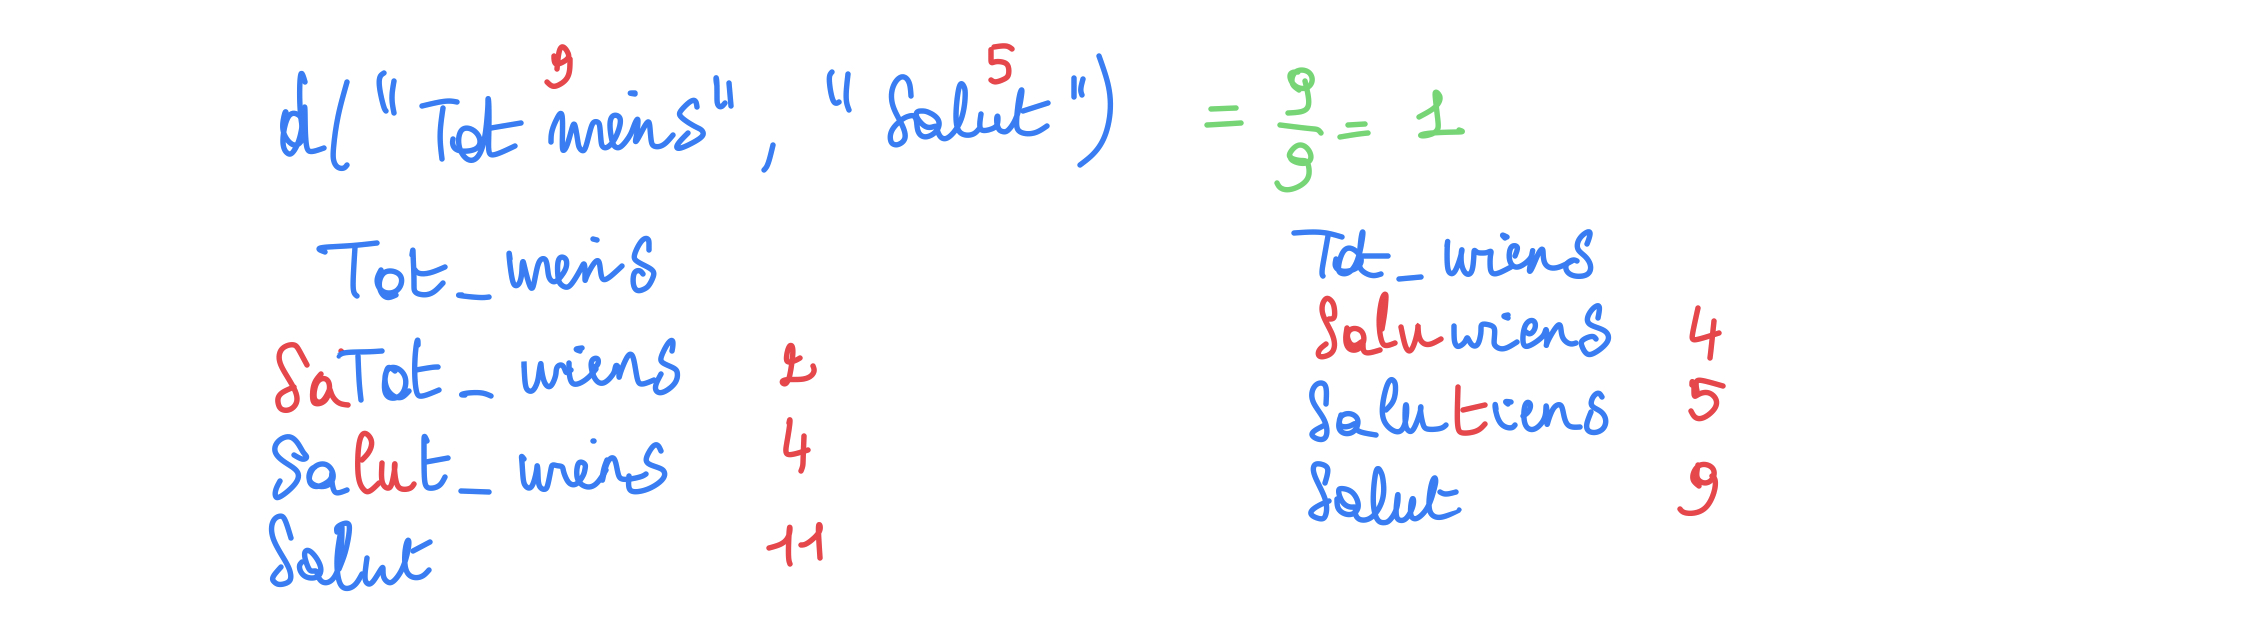 9 5
d("Tot wiens", "Salut") = 9/9 = 1
Tot_wiens
SaTot_wiens 2
Salut_wiens 4
Salut 11
Tot_wiens
Saluwiens 4
Salutiens 5
Salut 9